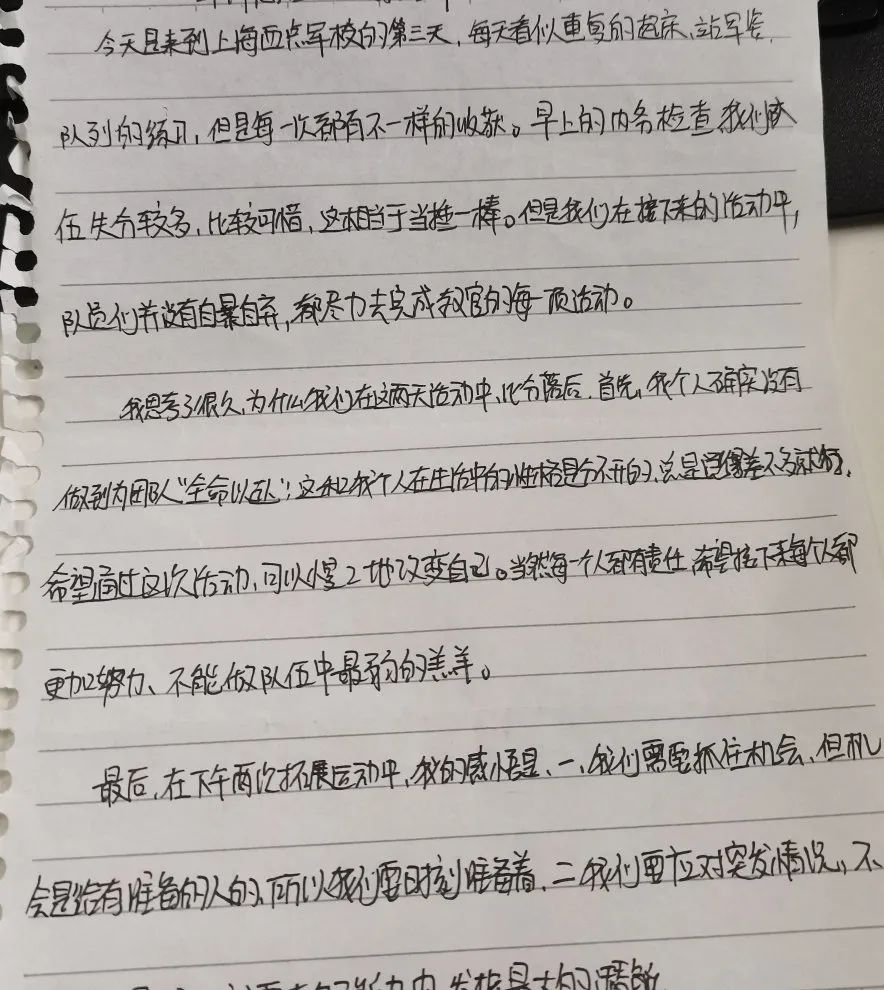 今天是来到上海西点军校的第三天,每天看似重复的起床、站军姿,
队列的练习,但是每一次都有不一样的收获。早上的内务检查我们队
伍失分较多,比较可惜,这相当于当捶一棒。但是我们在接下来的活动中,
队员们并没有自暴自弃,都尽力去完成教官的每一项活动。
我思考了很久,为什么我们在这两天活动中,比分落后,首先,我个人确实没有
做到为团队“全命以赴”;这和我个人在生活中的性格是分不开的,总是觉得差不多就好,
希望通过这次活动,可以慢慢地改变自己。当然每一个人都有责任,希望接下来每个人都
更加努力、不能做队伍中最弱的羔羊。
最后,在下午两次拓展运动中,我的感悟是、一、我们需要抓住机会、但机
会是给有准备的人的、所以我们要时刻准备着,二我们要应对突发情况,不
能力中,发挥最大的潜能